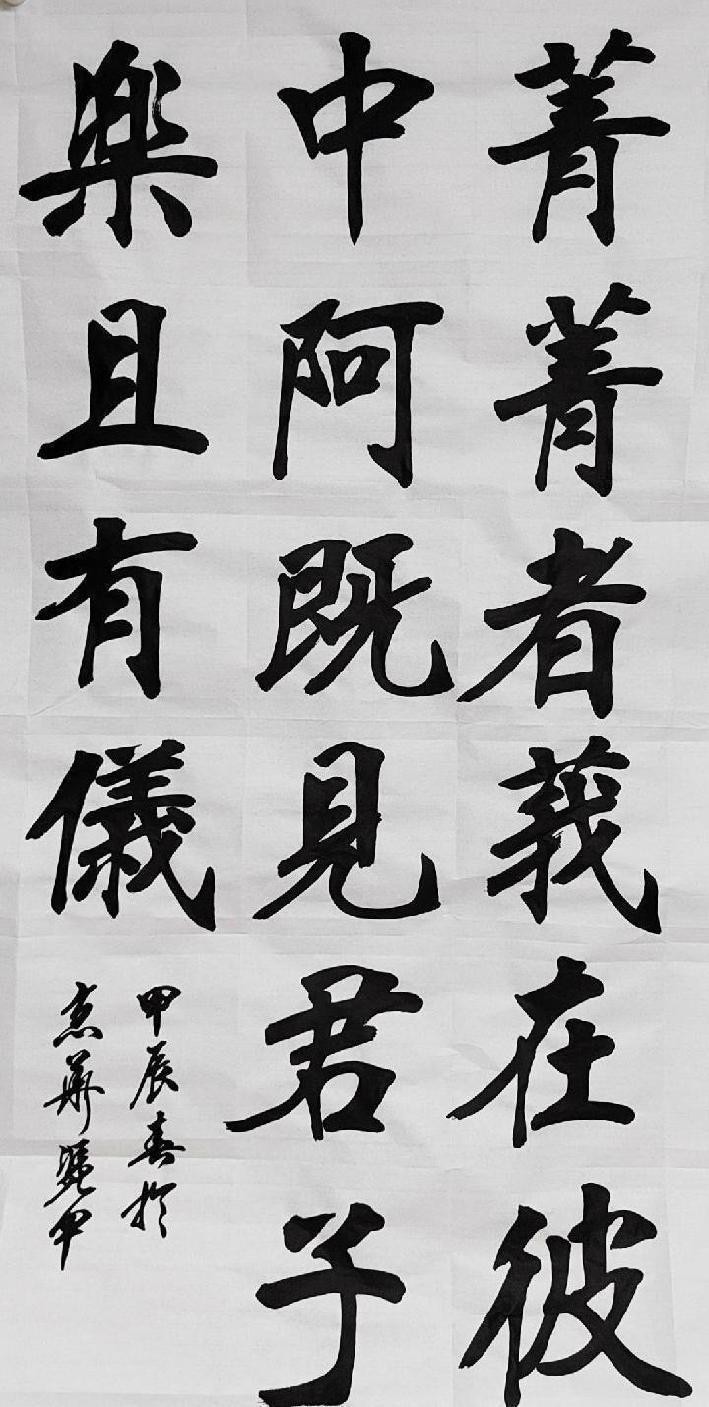 菁菁者莪在彼
中阿既見君子
樂且有儀
甲辰春於